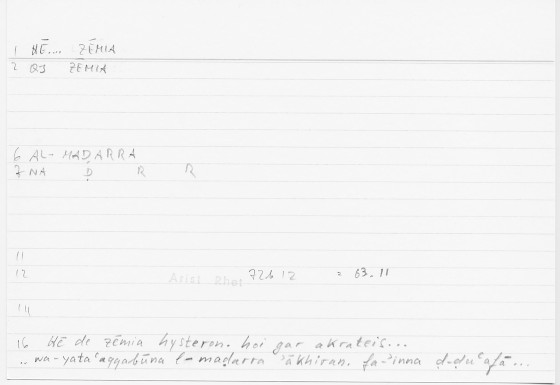 1 HĒ.... ZĒMIA
2 QS ZĒMIA
6 AL-MAḌARRA
7 NA Ḍ R R
11
12 Arist Rhet 72b 12 = 63.11
14
16 HĒ de zēmia hysteron. hoi gar akrateis...
.. wa-yataʿaqqabūna l-maḍarra ʾākhiran. fa-ʾinna ḍ-ḍuʿafā...